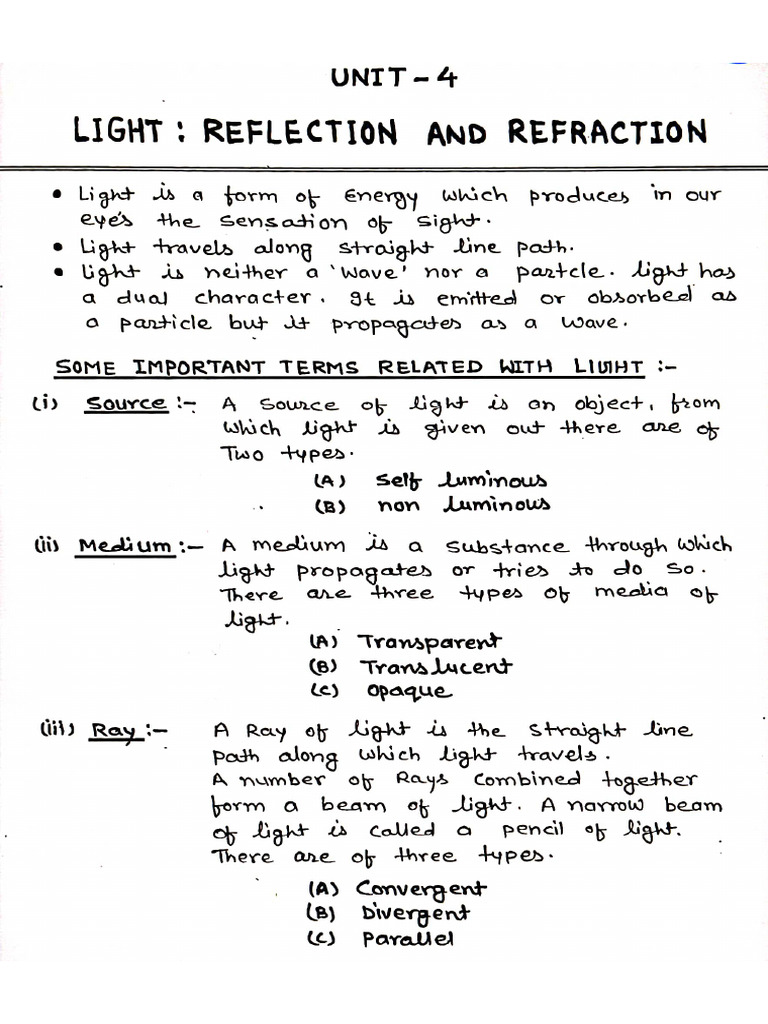 UNIT - 4
LIGHT : REFLECTION AND REFRACTION
• Light is a form of Energy which produces in our
eye's the sensation of sight.
• Light travels along straight line path.
• Light is neither a 'wave' nor a partcle. Light has
a dual character. It is emitted or absorbed as
a particle but it propagates as a wave.
SOME IMPORTANT TERMS RELATED WITH LIGHT :-
(i) Source :- A source of light is an object, from
which light is given out there are of
Two types.
(A) Self luminous
(B) non luminous
(ii) Medium :- A medium is a substance through which
light propagates or tries to do so.
There are three types of media of
light.
(A) Transparent
(B) Translucent
(C) Opaque
(iii) Ray :- A Ray of light is the straight line
path along which light travels.
A number of Rays combined together
form a beam of light. A narrow beam
of light is called a pencil of light.
There are of three types.
(A) Convergent
(B) Divergent
(C) Parallel